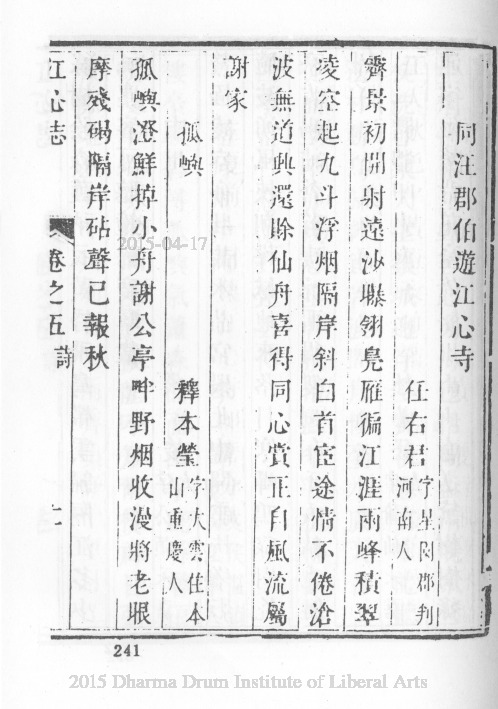 同汪郡伯遊江心寺
任右君字星閣郡判河南人
霽景初開射遠沙聯翎鳧雁徧江涯兩峰積翠
凌空起九斗浮烟隔岸斜白首宦途情不倦滄
波無道興還賒仙舟喜得同心賞正自風流屬
謝家
孤嶼
釋本瑩字大雲住本山重慶人
孤嶼澄鮮掉小舟謝公亭畔野烟收漫將老眼
摩殘碣隔岸砧聲已報秋
江心志 卷之五 詩
2015-04-17
241
2015 Dharma Drum Institute of Liberal Arts